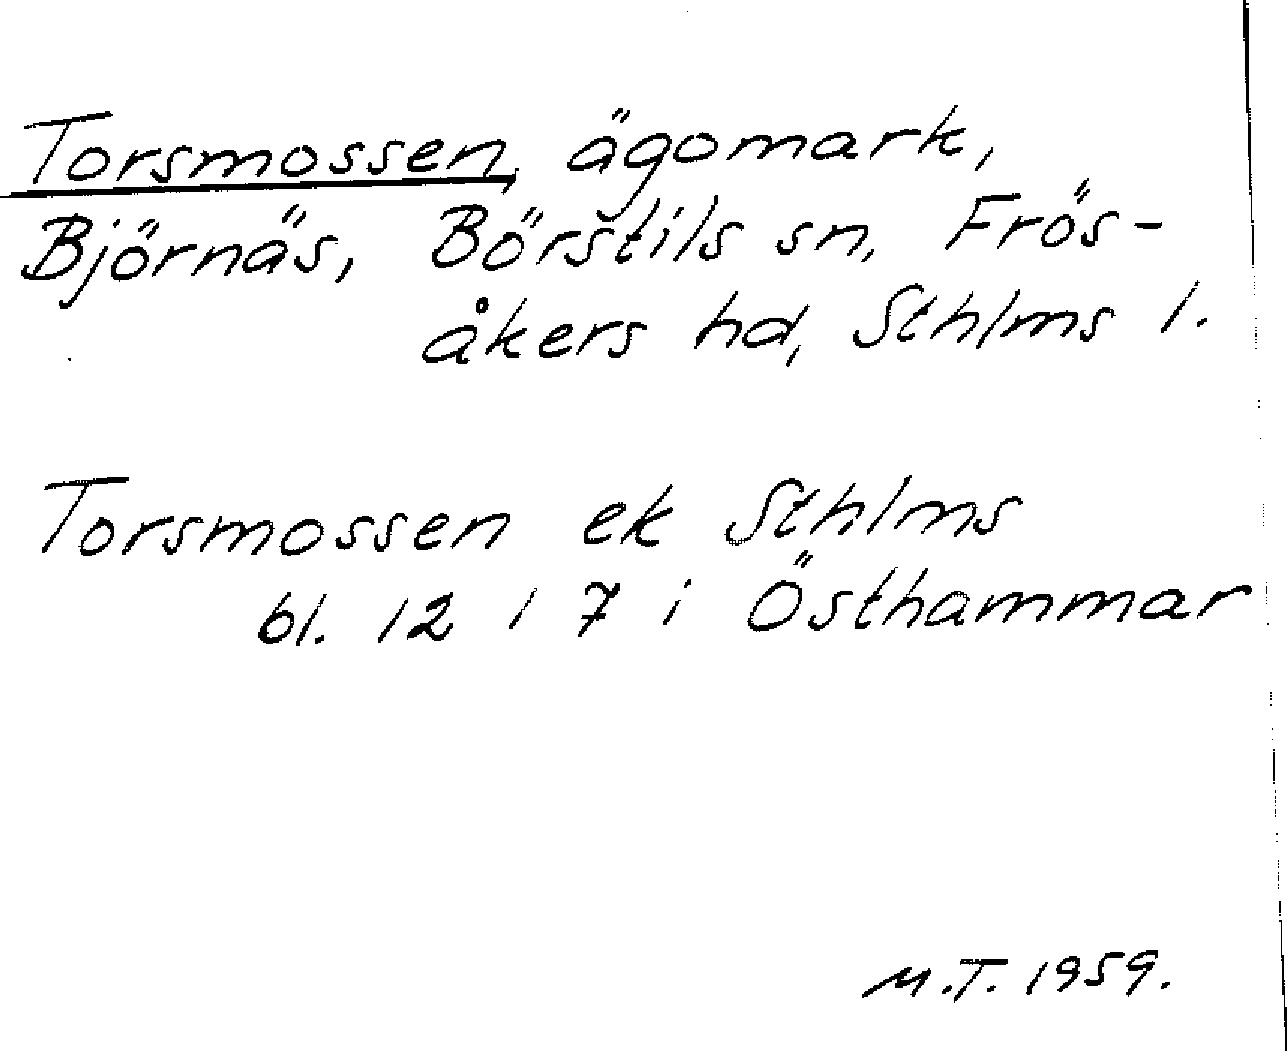 Torsmossen, ägomark,
Björnäs, Börstils sn, Frös-
åkers hd, Sthlms l.
Torsmossen ek Sthlms
bl. 12 / 7 i Östhammar
M.T. 1959.